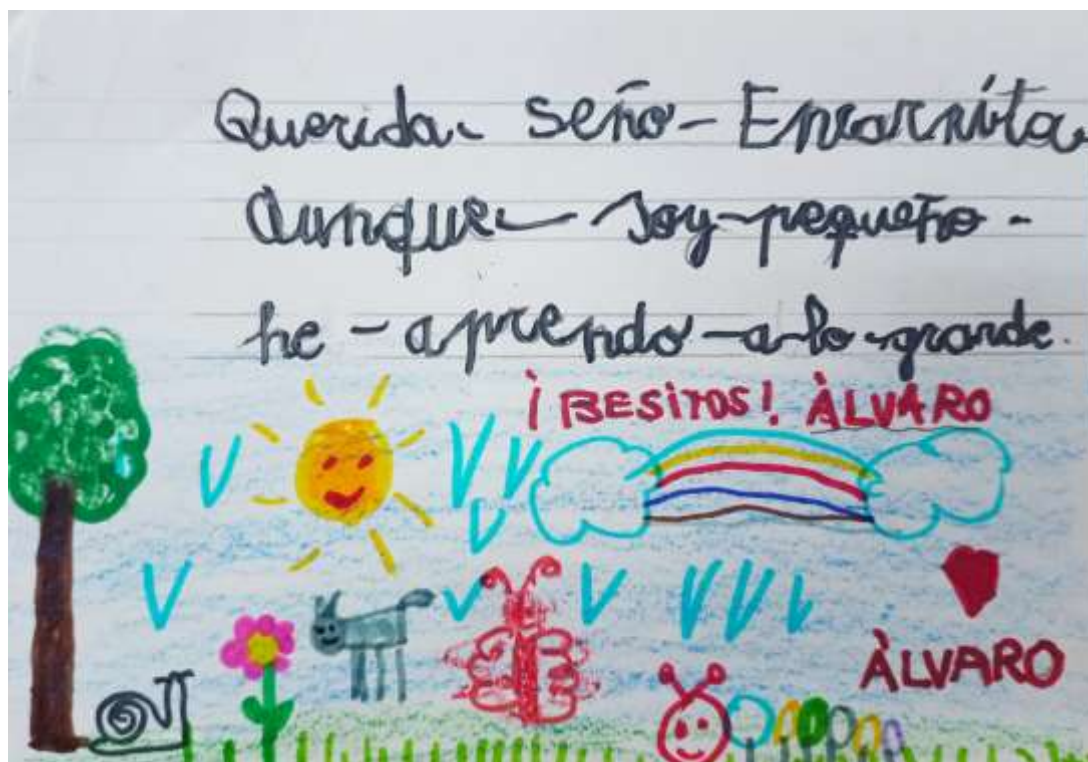 Querida seño Encarnita
Aunque soy pequeño
he aprendo a lo grande.
¡BESITOS! ÀLVARO
ÀLVARO